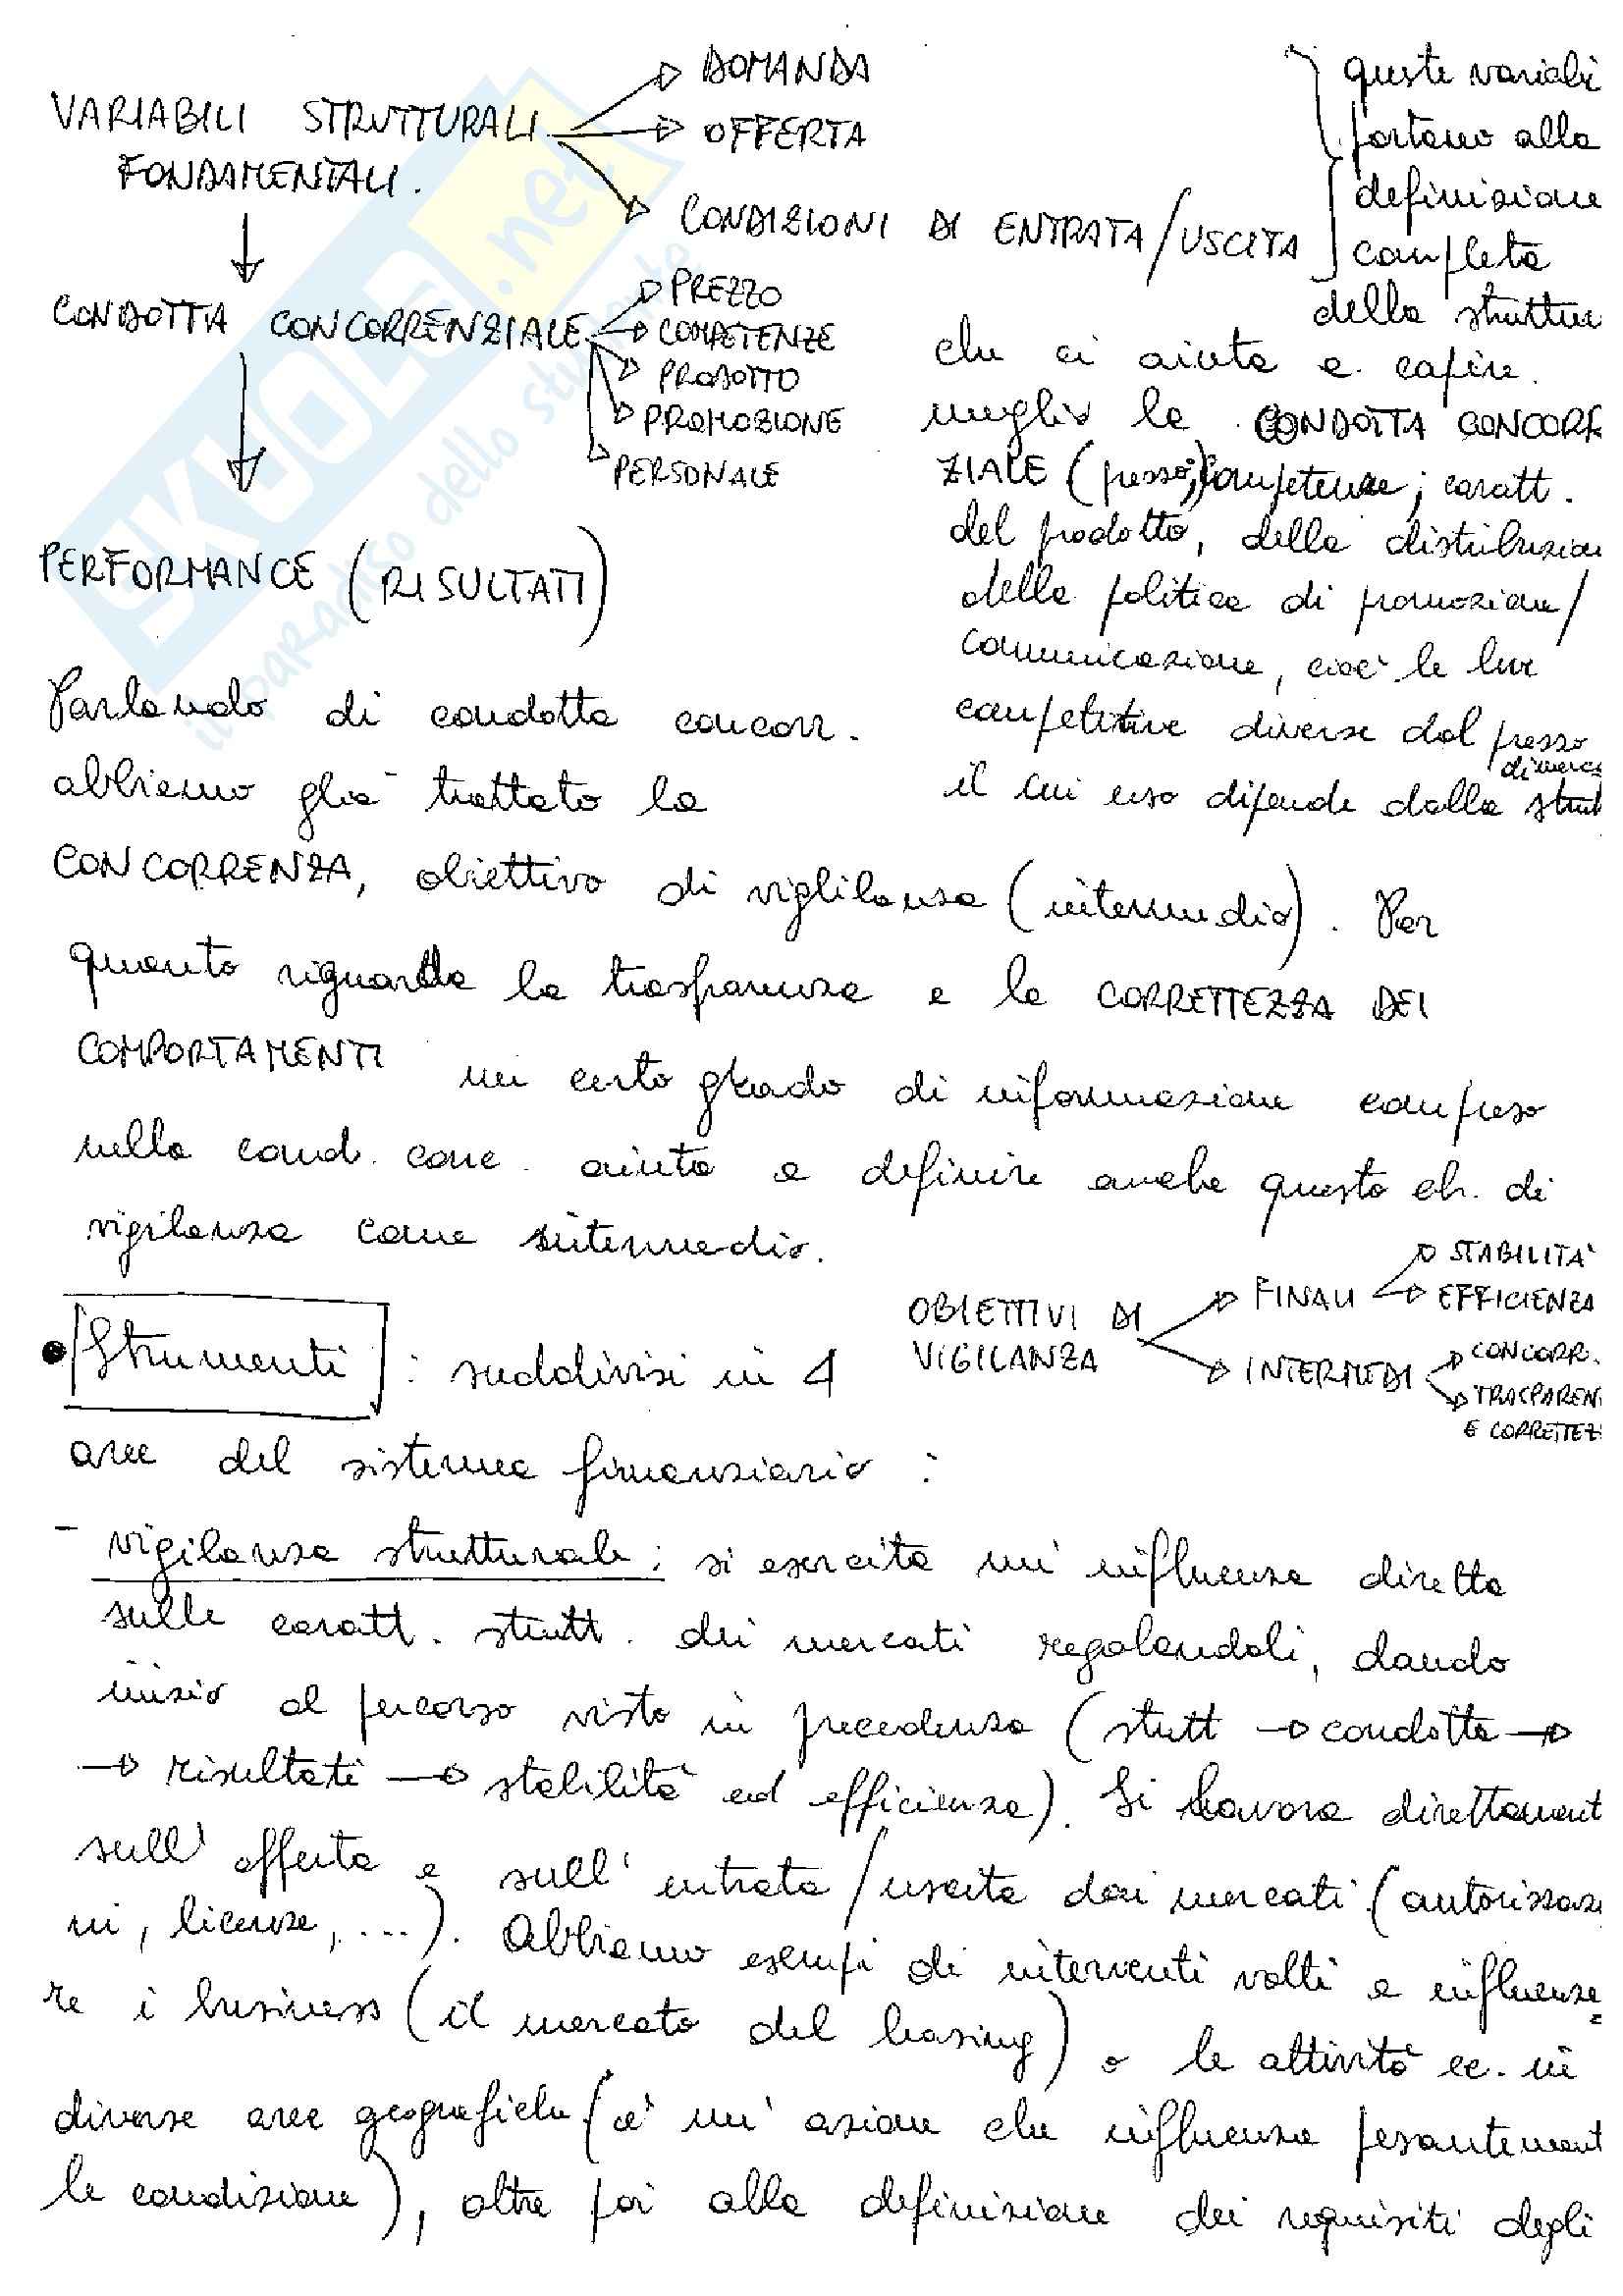 VARIABILI STRUTTURALI
FONDAMENTALI.
DOMANDA
OFFERTA
CONDIZIONI DI ENTRATA/USCITA
queste variabi
portano alla
definizione
completa
della struttur
CONDOTTA CONCORRENZIALE
PREZZO
COMPETENZE
PRODOTTO
PROMOZIONE
PERSONALE
che ci aiuta a capire
meglio la CONDOTTA CONCORR
ZIALE (prezzo, competenze, caratt.
del prodotto, della distribuzion
della politica di promozione/
comunicazione, cioè le leve
competitive diverse dal prezzo
il cui uso dipende dalla strut
di merca
PERFORMANCE (RISULTATI)
Parlando di condotta concorr.
abbiamo già trattato la
CONCORRENZA, obiettivo di viglilanza (intermedio). Per
quanto riguarda la trasparenza e la CORRETTEZZA DEI
COMPORTAMENTI un certo grado di informazione compreso
nella cond. conc. aiuta a definire anche questo ob. di
vigilanza come intermedio.
OBIETTIVI DI
VIGILANZA
FINALI
STABILITA'
EFFICIENZA
INTERMEDI
CONCORR.
TRASPAREN
E CORRETTEZ
• Strumenti : suddivisi in 4
aree del sistema finanziario :
- vigilanza strutturale: si esercita un'influenza diretta
sulle caratt. strutt. dei mercati regolandoli, dando
inizio al percorso visto in precedenza (strutt → condotta →
→ risultati → stabilità ed efficienza). Si lavora direttament
sull'offerta e sull'entrata/uscita dai mercati (autorizzaz
ni, licenze, ...). Abbiamo esempi di interventi volti a influenza
re i business (il mercato del leasing) o le attività ec. in
diverse aree geografiche (è un'azione che influenza pesantement
le condizione), oltre poi alla definizione dei requisiti degli
SKUOLA.net
il paradiso dello studente